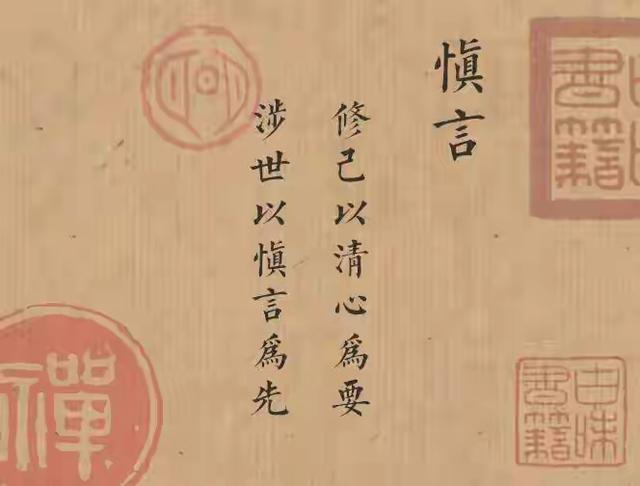 慎言
修己以清心爲要
涉世以慎言爲先
禪
書籍